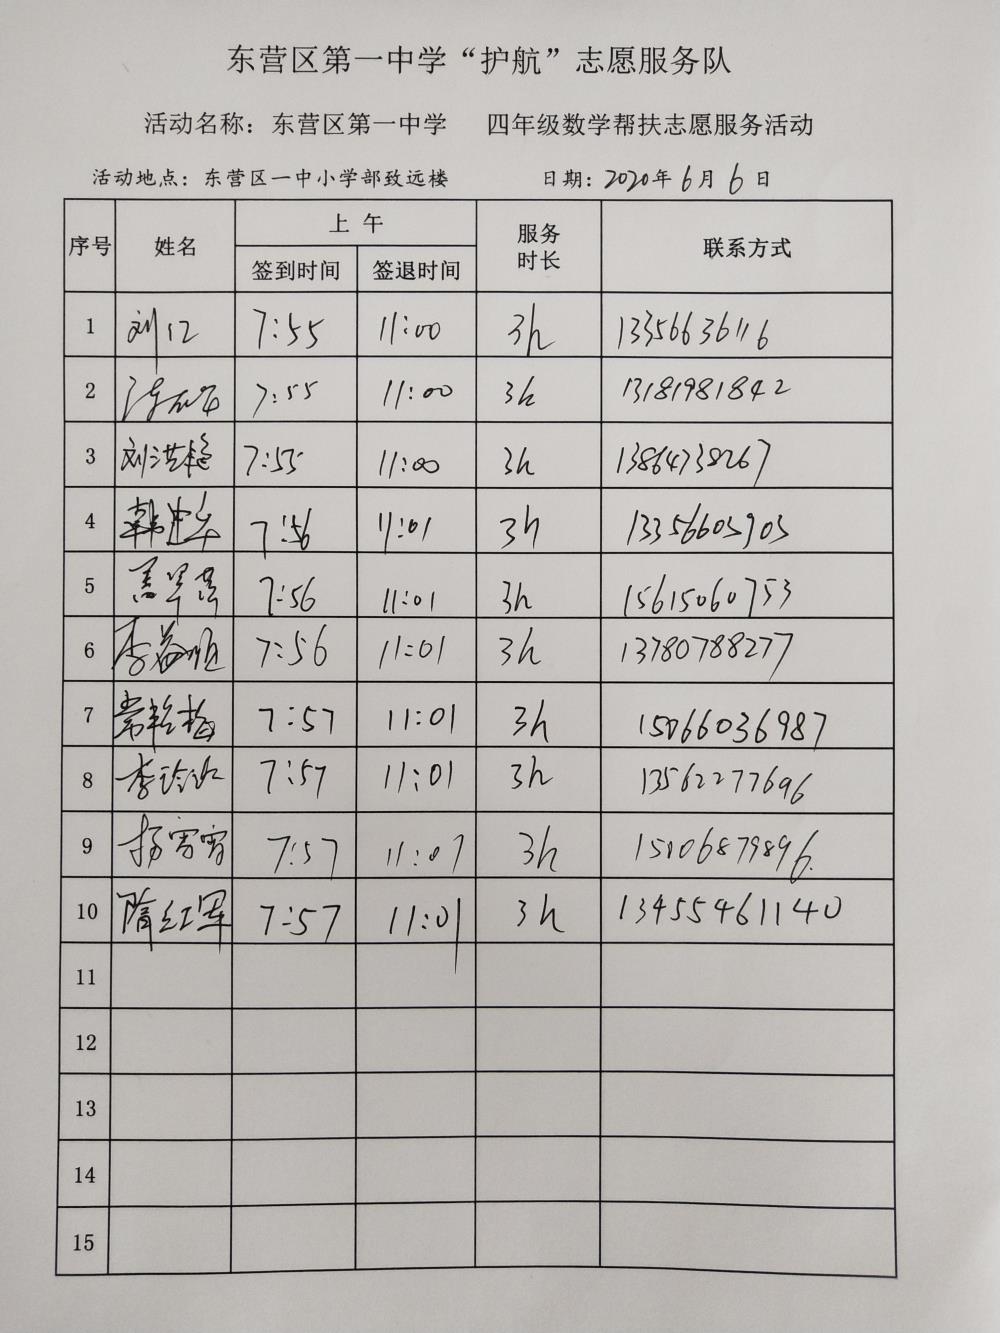 东营区第一中学“护航”志愿服务队
活动名称：东营区第一中学 四年级数学帮扶志愿服务活动
活动地点：东营区一中小学部致远楼 日期：2020年6月6日
序号 姓名 上午 服务时长 联系方式
签到时间 签退时间
1 刘江 7:55 11:00 3h 13356636116
2 7:55 11:00 3h 13181981842
3 刘洪艳 7:55 11:00 3h 13864738267
4 韩建华 7:56 11:01 3h 13356605903
5 7:56 11:01 3h 15615060753
6 李益顺 7:56 11:01 3h 13780788277
7 常艳梅 7:57 11:01 3h 15066036987
8 李 7:57 11:01 3h 13562277696
9 杨宵宵 7:57 11:01 3h 15006879896
10 隋红军 7:57 11:01 3h 13455461140
11
12
13
14
15